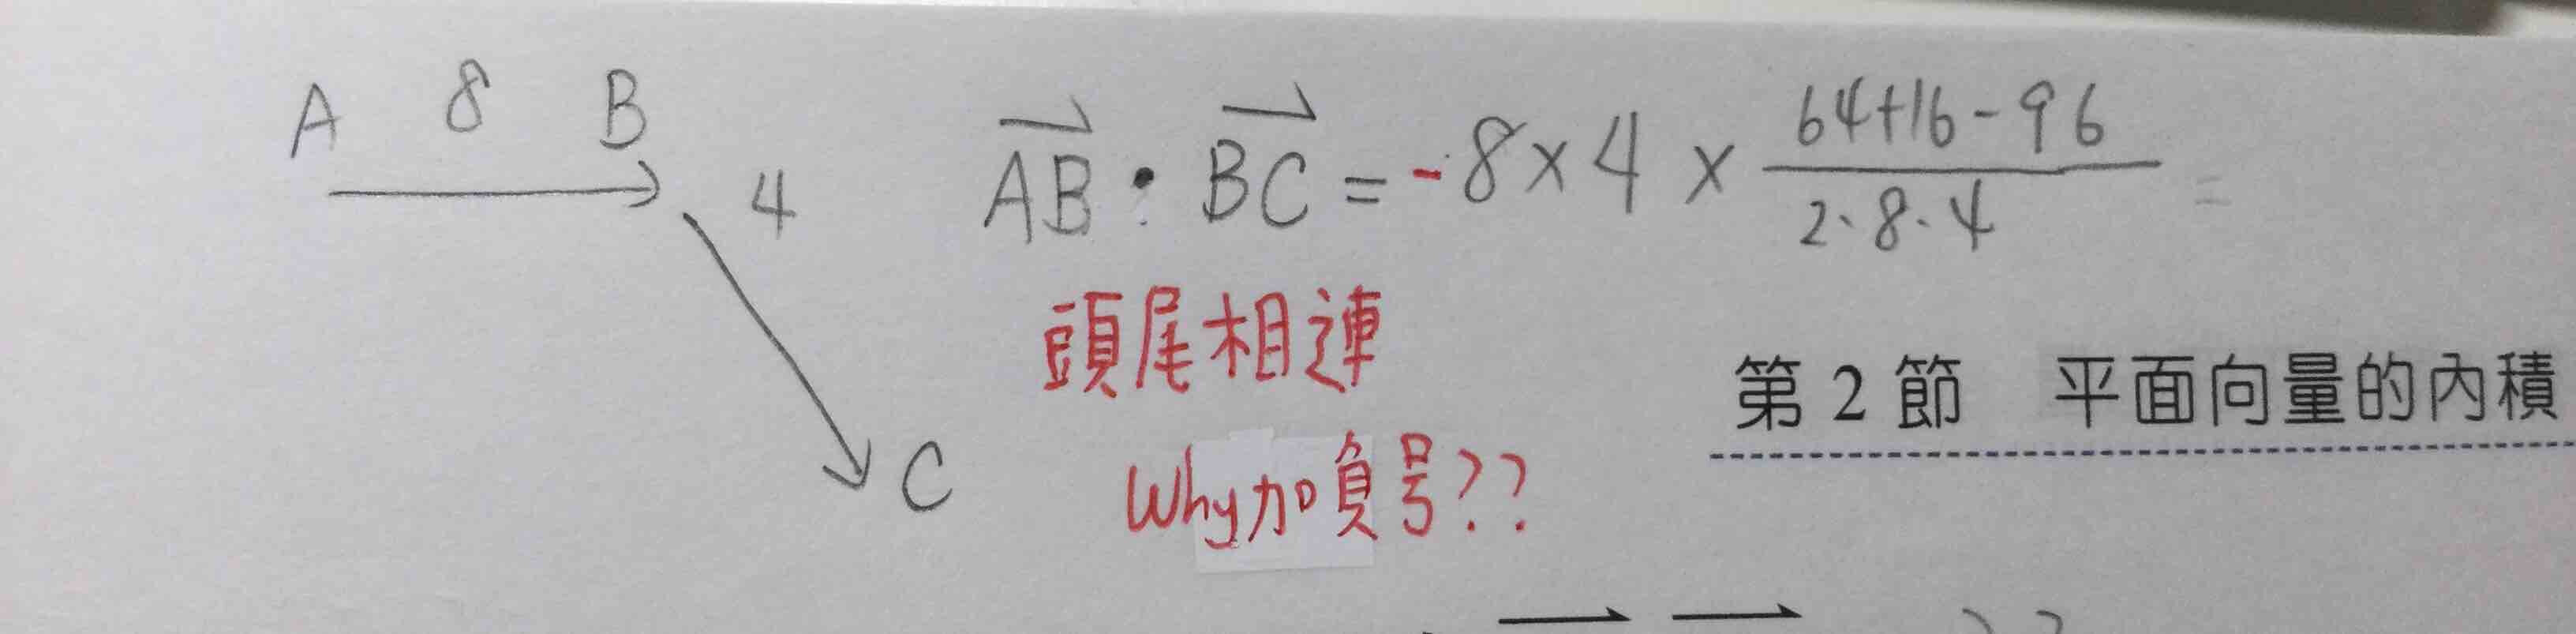 A 8 B
4
C
$\overrightarrow{AB} \cdot \overrightarrow{BC} = -8 \times 4 \times \frac{64+16-96}{2 \cdot 8 \cdot 4} =$
頭尾相連
第 2 節 平面向量的內積
Why加負号??